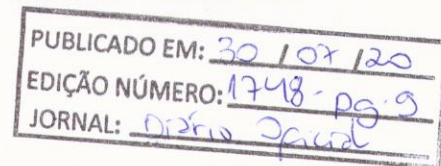 PUBLICADO EM: 30 / 07 / 20
EDIÇÃO NÚMERO: 1748 - pg. 9
JORNAL: Diário Oficial